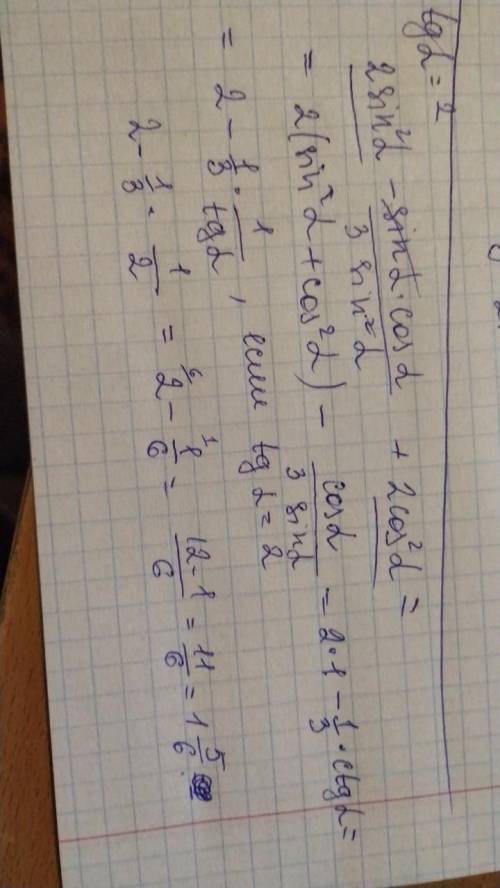 tg α = 2
2 sin²α - sin α · cos α / 3 sin²α + 2cos²α =
= 2(sin²α + cos²α) - cos α / 3 sin α = 2 · 1 - 1/3 · ctg α =
= 2 - 1/3 · 1/tg α , если tg α = 2
2 - 1/3 · 1/2 = 2 - 1/6 = 12-1/6 = 11/6 = 1 5/6